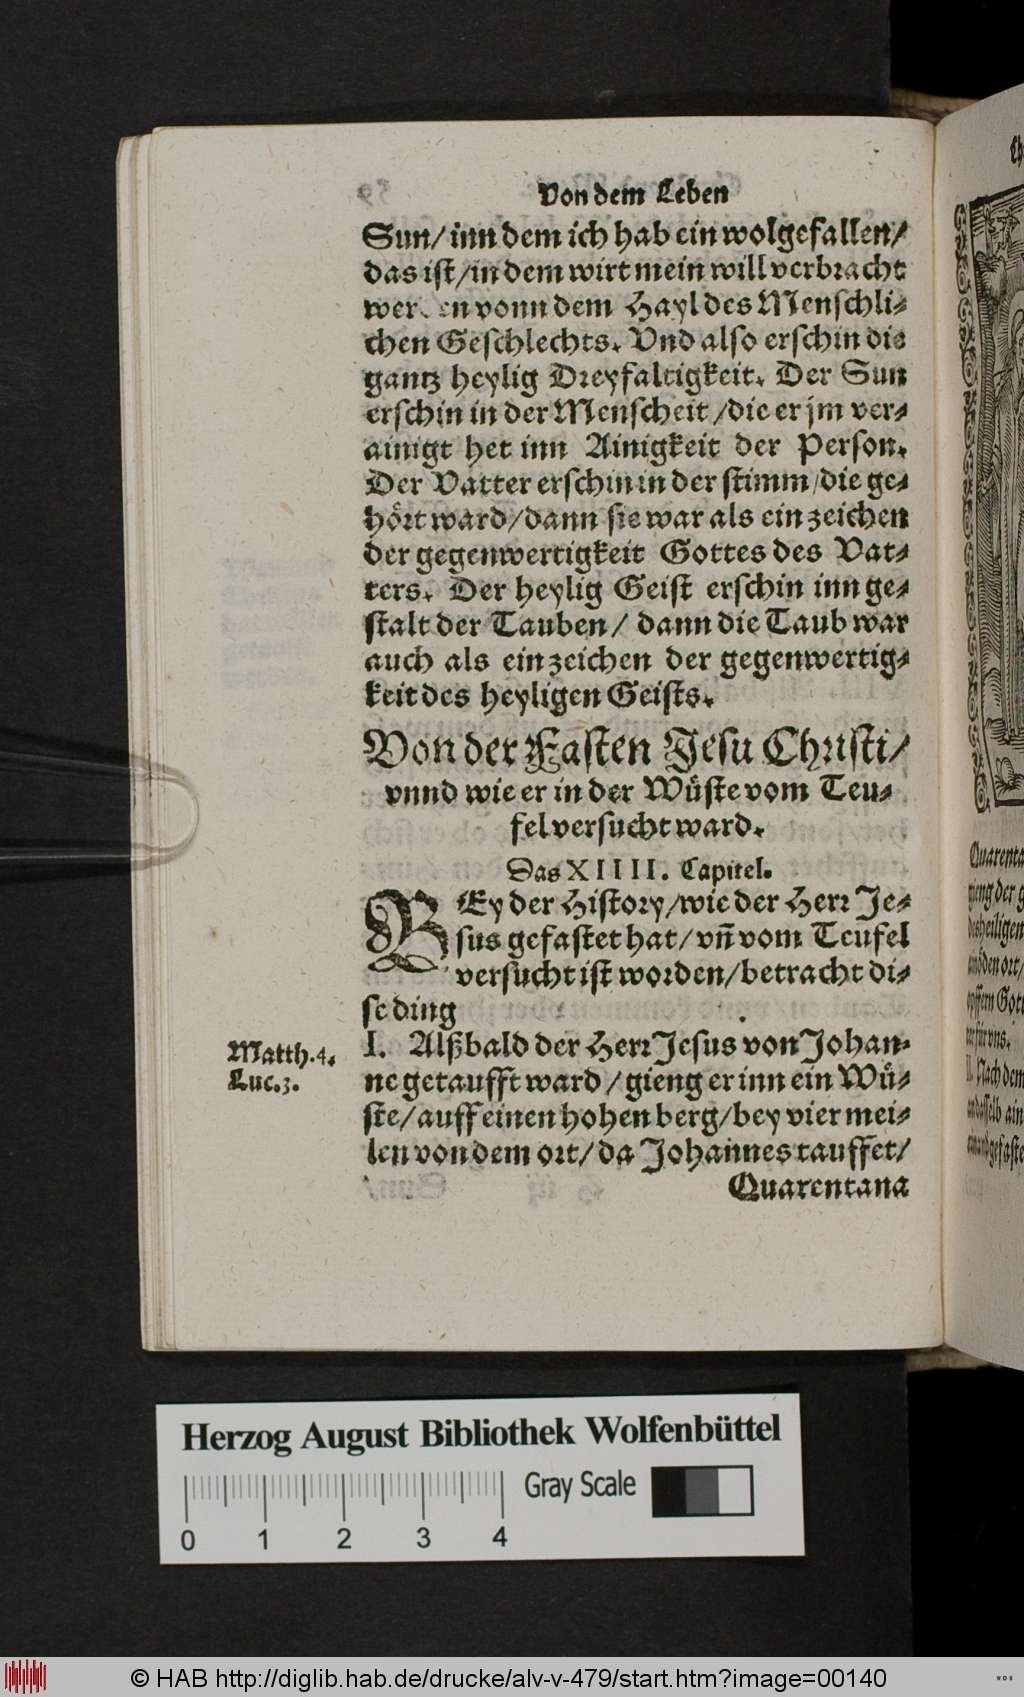 Von dem Leben
Sun/ inn dem ich hab ein wolgefallen/
das ist/ in dem wirt mein will verbracht
wer en vonn dem Hayl des Menschli-
chen Geschlechts. Vnd also erschin die
gantz heylig Dreyfaltigkeit. Der Sun
erschin in der Menscheit/ die er jm ver-
ainigt het inn Ainigkeit der Person.
Der Vatter erschin in der stimm/ die ge-
hört ward/ dann sie war als ein zeichen
der gegenwertigkeit Gottes des Vat-
ters. Der heylig Geist erschin inn ge-
stalt der Tauben/ dann die Taub war
auch als ein zeichen der gegenwertig-
keit des heyligen Geists.
Von der Fasten Jesu Christi/
vnnd wie er in der Wüste vom Teu-
fel versucht ward.
Das XIIII. Capitel.
BEy der History/ wie der Herr Je-
sus gefastet hat/ vñ vom Teufel
versucht ist worden/ betracht di-
se ding
Matth.4.
Luc.3.
I. Alßbald der Herr Jesus von Johan-
ne getaufft ward/ gieng er inn ein Wü-
ste/ auff einen hohen berg/ bey vier mei-
len von dem ort/ da Johannes tauffet/
Quarentana
Quarenta
gieng der g
des heiligen
ainöden ort/
opffern Got
ter für vns.
II. Nach dem
Herzog August Bibliothek Wolfenbüttel
Gray Scale
0 1 2 3 4
© HAB http://diglib.hab.de/drucke/alv-v-479/start.htm?image=00140